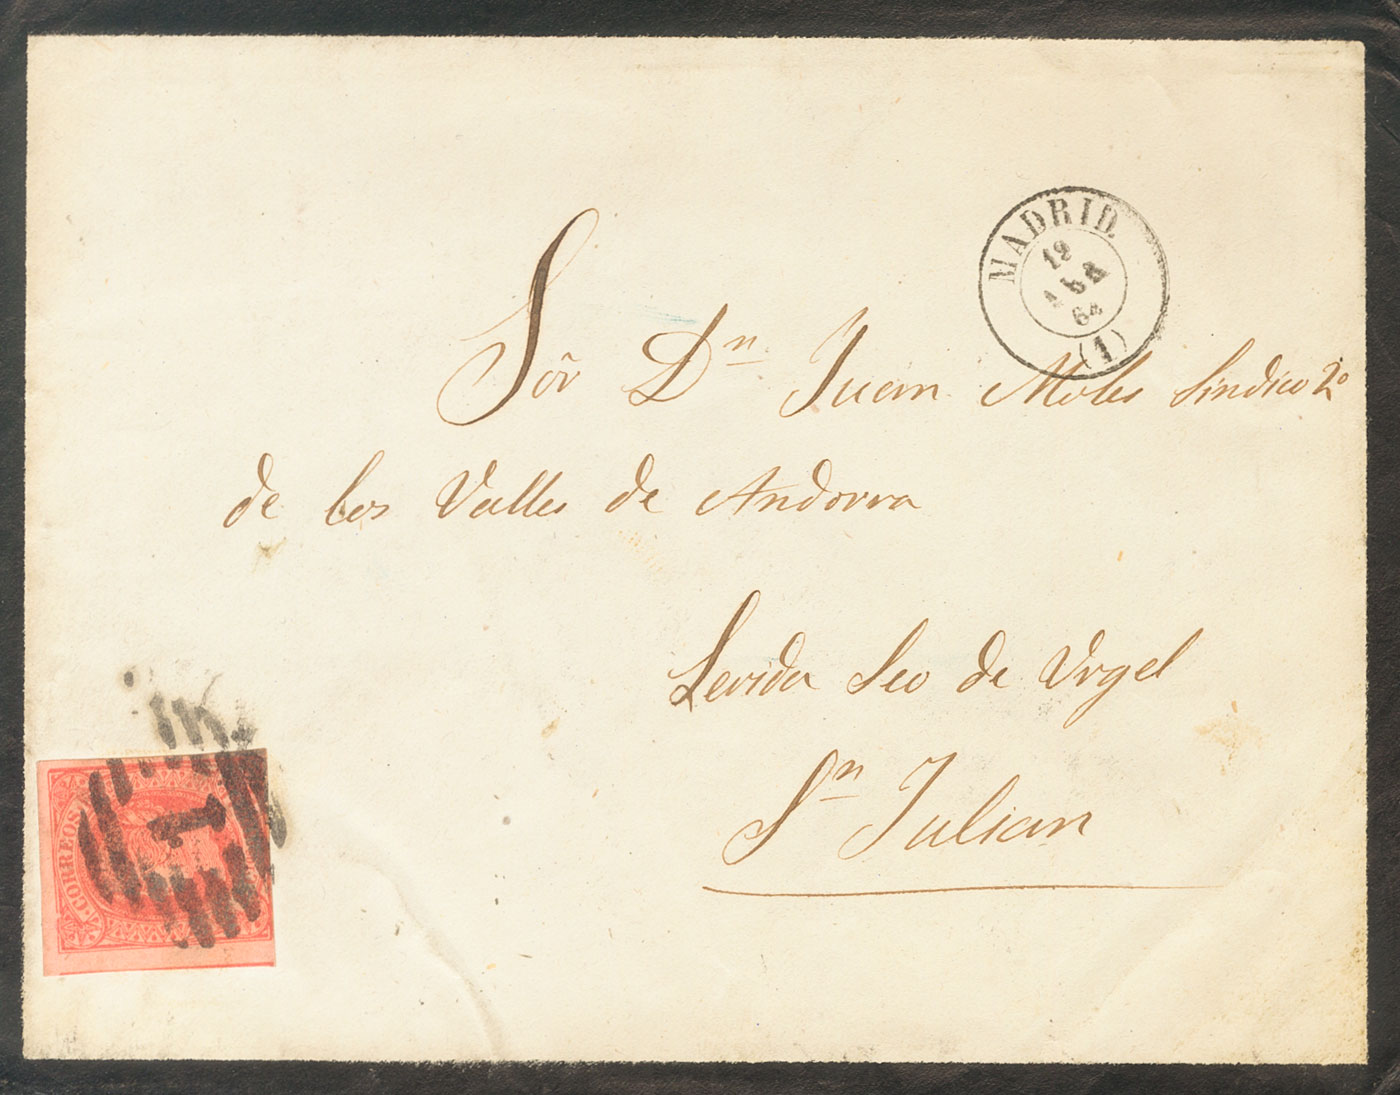 MADRID.
12
64
(1)
Sôr Dn Juan Moles Sindico 2º
de los Valles de Andorra
Lerida Seo de Urgel
Sn Julian
CORREOS
1